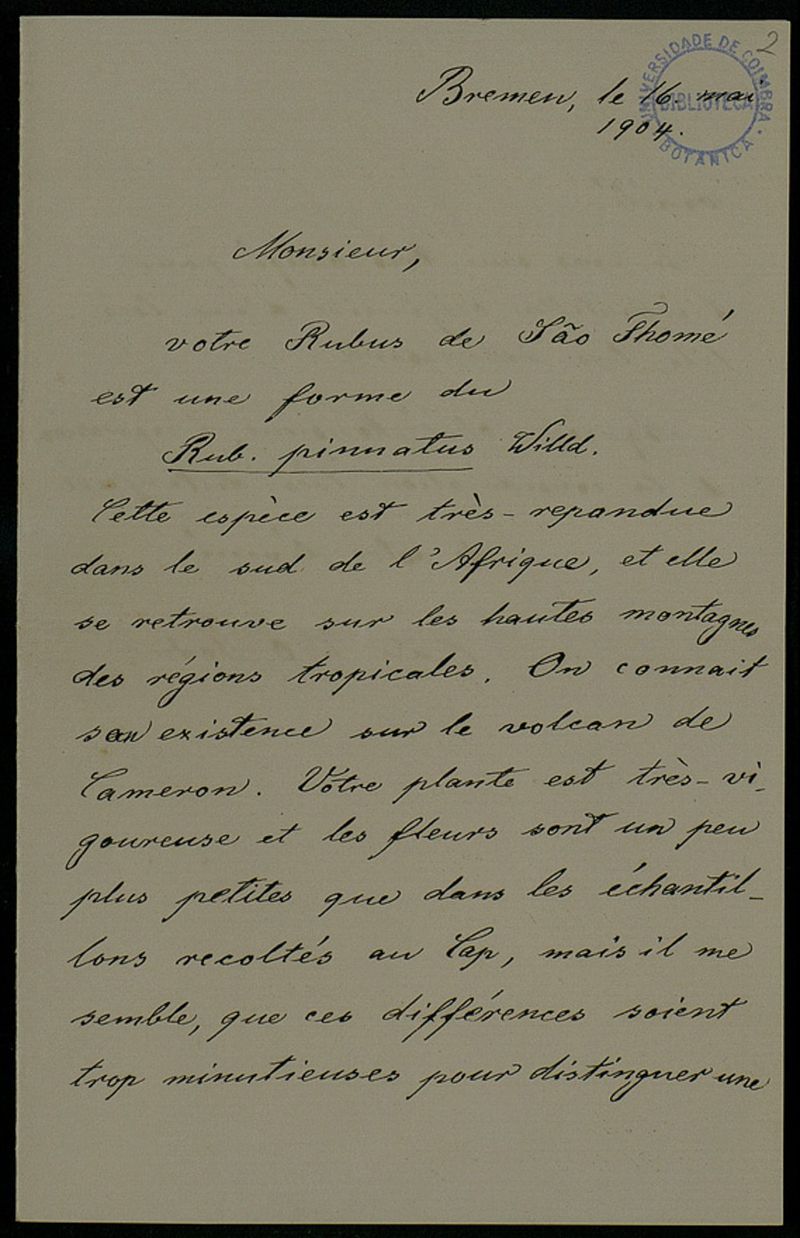 2
UNIVERSIDADE DE COIMBRA
BIBLIOTECA
BOTANICA
Bremen, le 16. mai
1904.
Monsieur,
votre Rubus de São Thomé
est une forme du
Rub. pinnatus Willd.
Cette espèce est très-repandue
dans le sud de l'Afrique, et elle
se retrouve sur les hautes montagnes
des régions tropicales. On connait
son existence sur le volcan de
Cameron. Votre plante est très-vi-
goureuse et les fleurs sont un peu
plus petites que dans les échantil-
lons recoltés au Cap, mais il me
semble, que ces différences soient
trop minutieuses pour distinguer une